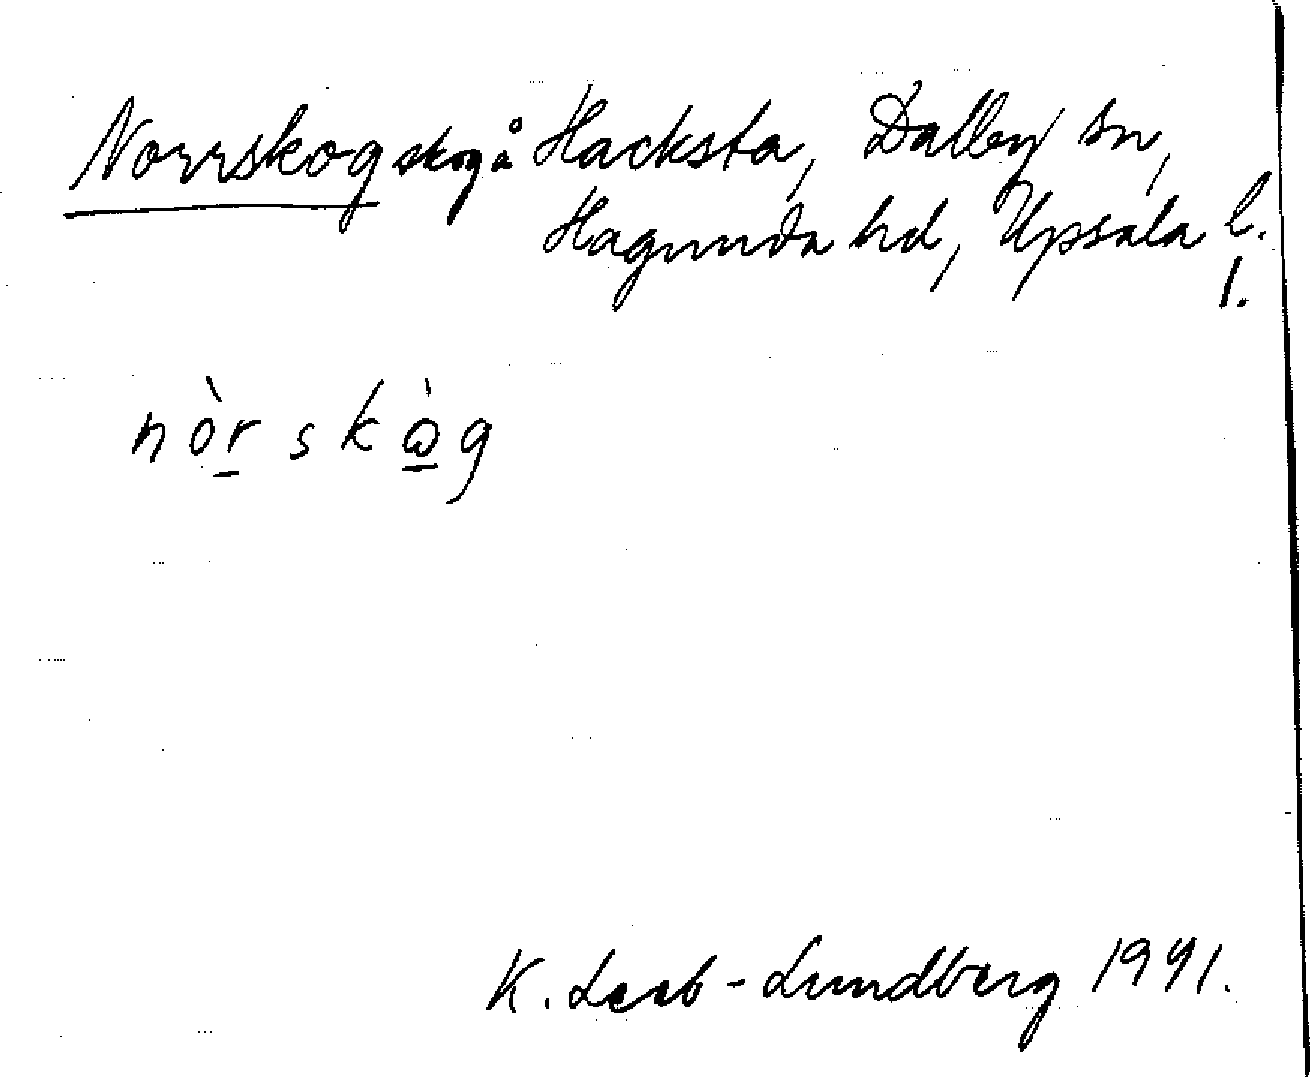 Norrskog skog å Hacksta, Dalby sn,
Hagunda hd, Upsala l.
1.
nòrskòg
K. Leeb-Lundberg 1941.